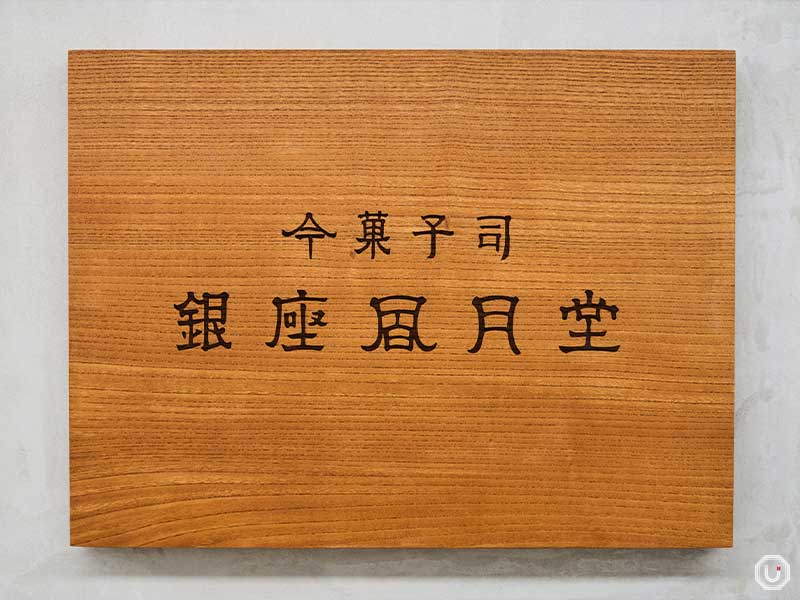 今菓子司
銀座凮月堂